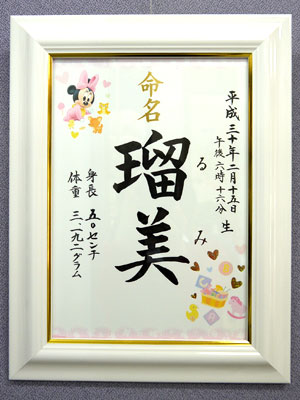 平成三十年二月十五日 生
午後六時十六分
るみ
命名
瑠美
身長 五〇センチ
体重 三、一九二グラム